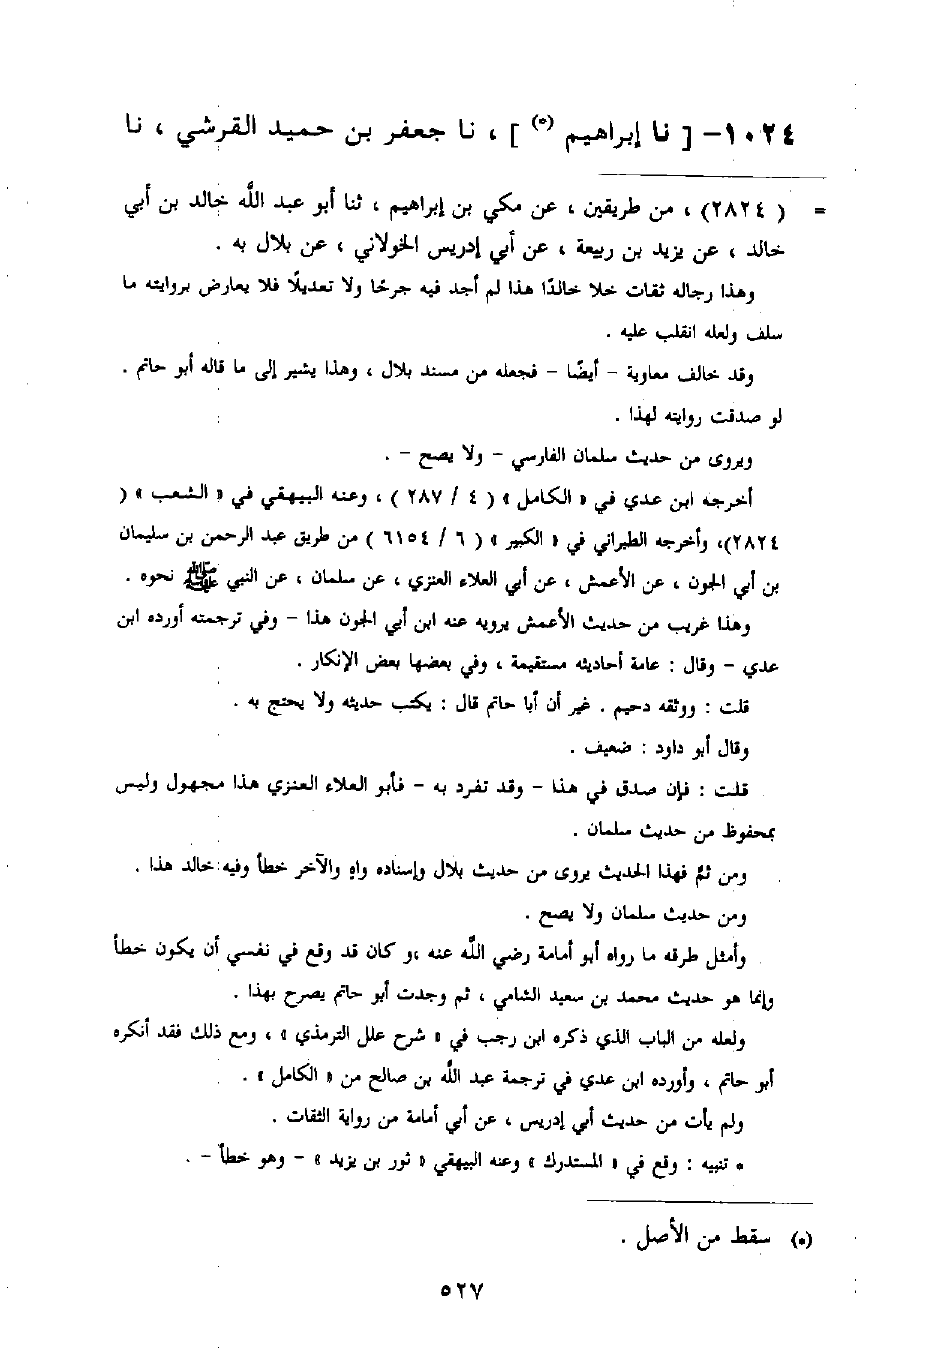 ١٠٢٤- [ نا إبراهيم (*) ] ، نا جعفر بن حميد القرشي ، نا
= ( ٢٨٢٤) ، من طريقين ، عن مكي بن إبراهيم ، ثنا أبو عبد اللَّه خالد بن أبي
خالد ، عن يزيد بن ربيعة ، عن أبي إدريس الخولاني ، عن بلال به .
وهذا رجاله ثقات خلا خالدًا هذا لم أجد فيه جرحًا ولا تعديلًا فلا يعارض بروايته ما
سلف ولعله انقلب عليه .
وقد خالف معاوية - أيضًا - فجعله من مسند بلال ، وهذا يشير إلى ما قاله أبو حاتم .
لو صدقت روايته لهذا .
ويروى من حديث سلمان الفارسي - ولا يصح - .
أخرجه ابن عدي في « الكامل » ( ٤ / ٢٨٧ ) ، وعنه البيهقي في « الشعب » (
٢٨٢٤)، وأخرجه الطبراني في « الكبير » ( ٦ / ٦١٥٤ ) من طريق عبد الرحمن بن سليمان
بن أبي الجون ، عن الأعمش ، عن أبي العلاء العنزي ، عن سلمان ، عن النبي ﷺ نحوه .
وهذا غريب من حديث الأعمش يرويه عنه ابن أبي الجون هذا - وفي ترجمته أورده ابن
عدي - وقال : عامة أحاديثه مستقيمة ، وفي بعضها بعض الإنكار .
قلت : ووثقه دحيم . غير أن أبا حاتم قال : يكتب حديثه ولا يحتج به .
وقال أبو داود : ضعيف .
قلت : فإن صدق في هذا - وقد تفرد به - فأبو العلاء العنزي هذا مجهول وليس
بمحفوظ من حديث سلمان .
ومن ثمَّ فهذا الحديث يروى من حديث بلال وإسناده واهٍ والآخر خطأ وفيه خالد هذا .
ومن حديث سلمان ولا يصح .
وأمثل طرقه ما رواه أبو أمامة رضي اللَّه عنه ،و كان قد وقع في نفسي أن يكون خطأ
وإنما هو حديث محمد بن سعيد الشامي ، ثم وجدت أبو حاتم يصرح بهذا .
ولعله من الباب الذي ذكره ابن رجب في « شرح علل الترمذي » ، ومع ذلك فقد أنكره
أبو حاتم ، وأورده ابن عدي في ترجمة عبد اللَّه بن صالح من « الكامل » .
ولم يأت من حديث أبي إدريس ، عن أبي أمامة من رواية الثقات .
* تنبيه : وقع في « المستدرك » وعنه البيهقي « ثور بن يزيد » - وهو خطأ - .
(*) سقط من الأصل .
٥٢٧